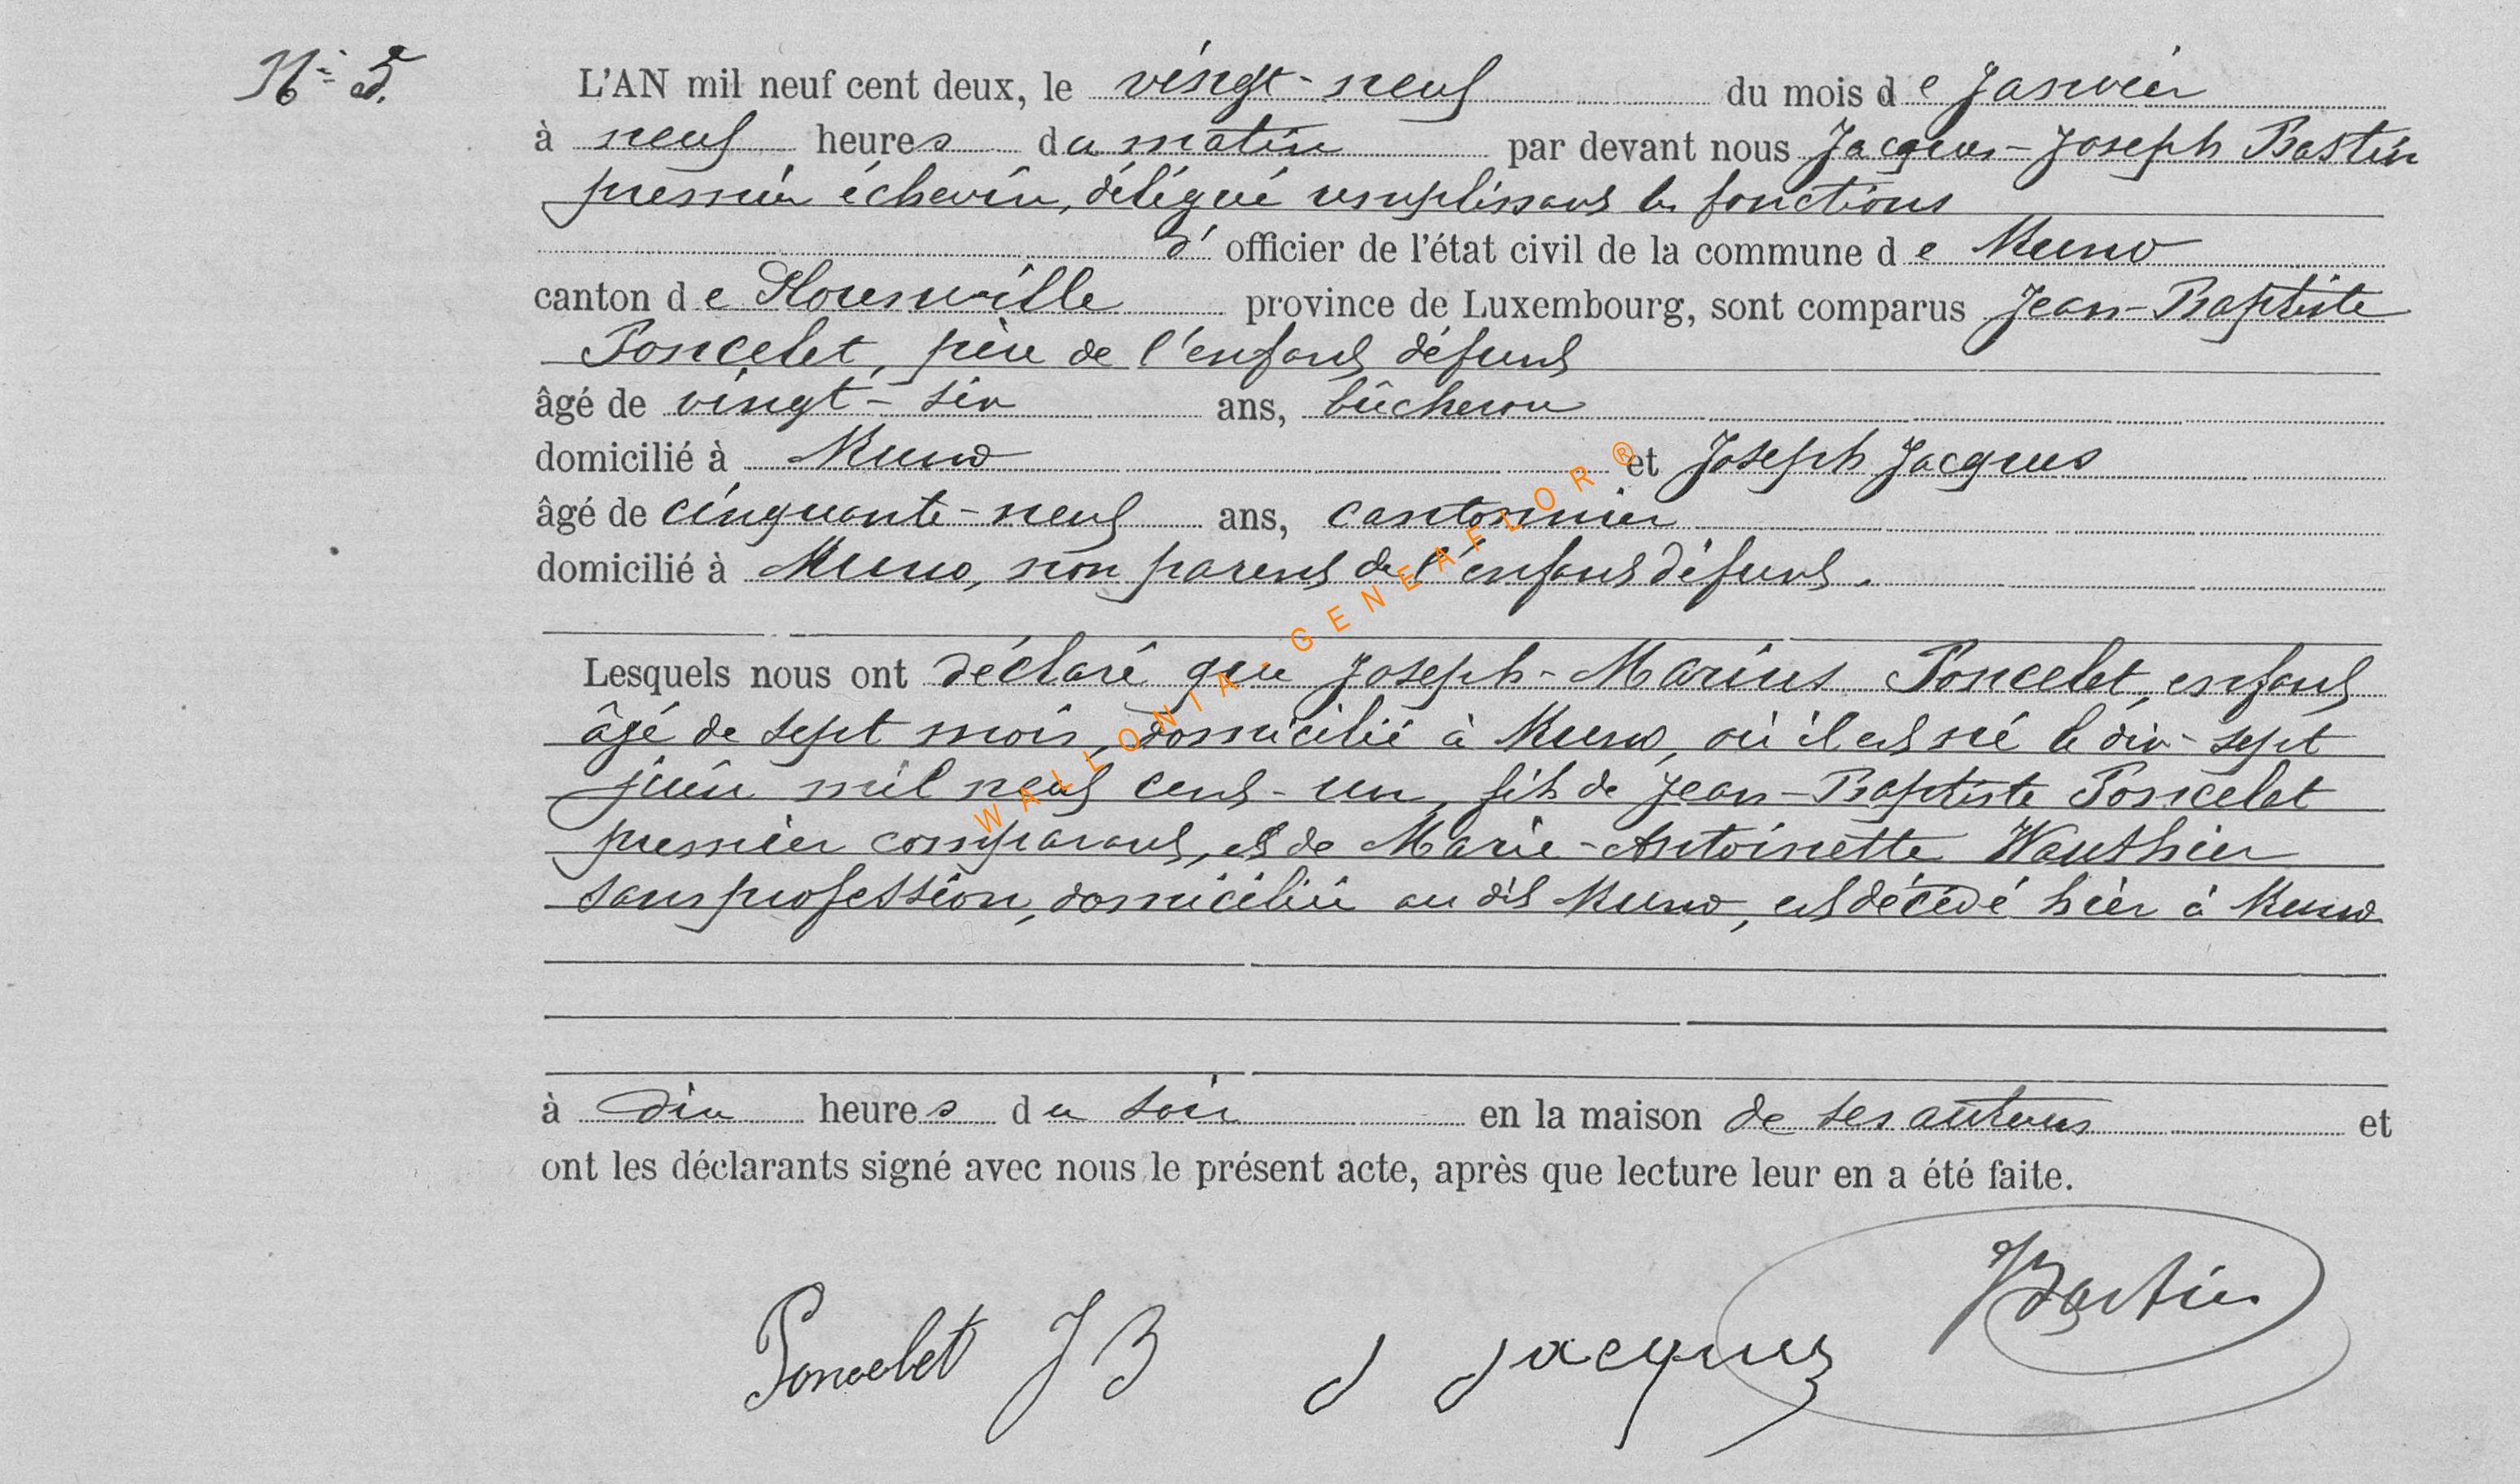 N° 5.
L'AN mil neuf cent deux, le vingt-neuf du mois de Janvier
à neuf heures du matin par devant nous Jacques-Joseph Bastin
premier échevin, délégué remplissant les fonctions
d' officier de l'état civil de la commune de Muno
canton de Florenville province de Luxembourg, sont comparus Jean-Baptiste
Poncelet, père de l'enfant défunt
âgé de vingt-six ans, bûcheron
domicilié à Muno et Joseph Jacques
âgé de cinquante-neuf ans, cantonnier
domicilié à Muno, non parent de l'enfant défunt.
Lesquels nous ont déclaré que Joseph-Marius Poncelet, enfant
âgé de sept mois, domicilié à Muno, où il est né le dix-sept
juin mil neuf cent-un, fils de Jean-Baptiste Poncelet
premier comparant, et de Marie-Antoinette Wauthier
sans profession, domiciliée au dit Muno, est décédé hier à Muno
à dix heures du soir en la maison de ses auteurs et
ont les déclarants signé avec nous le présent acte, après que lecture leur en a été faite.
Poncelet J B J Jacques JBastin
WALLONIA - GENEAFLOR ®